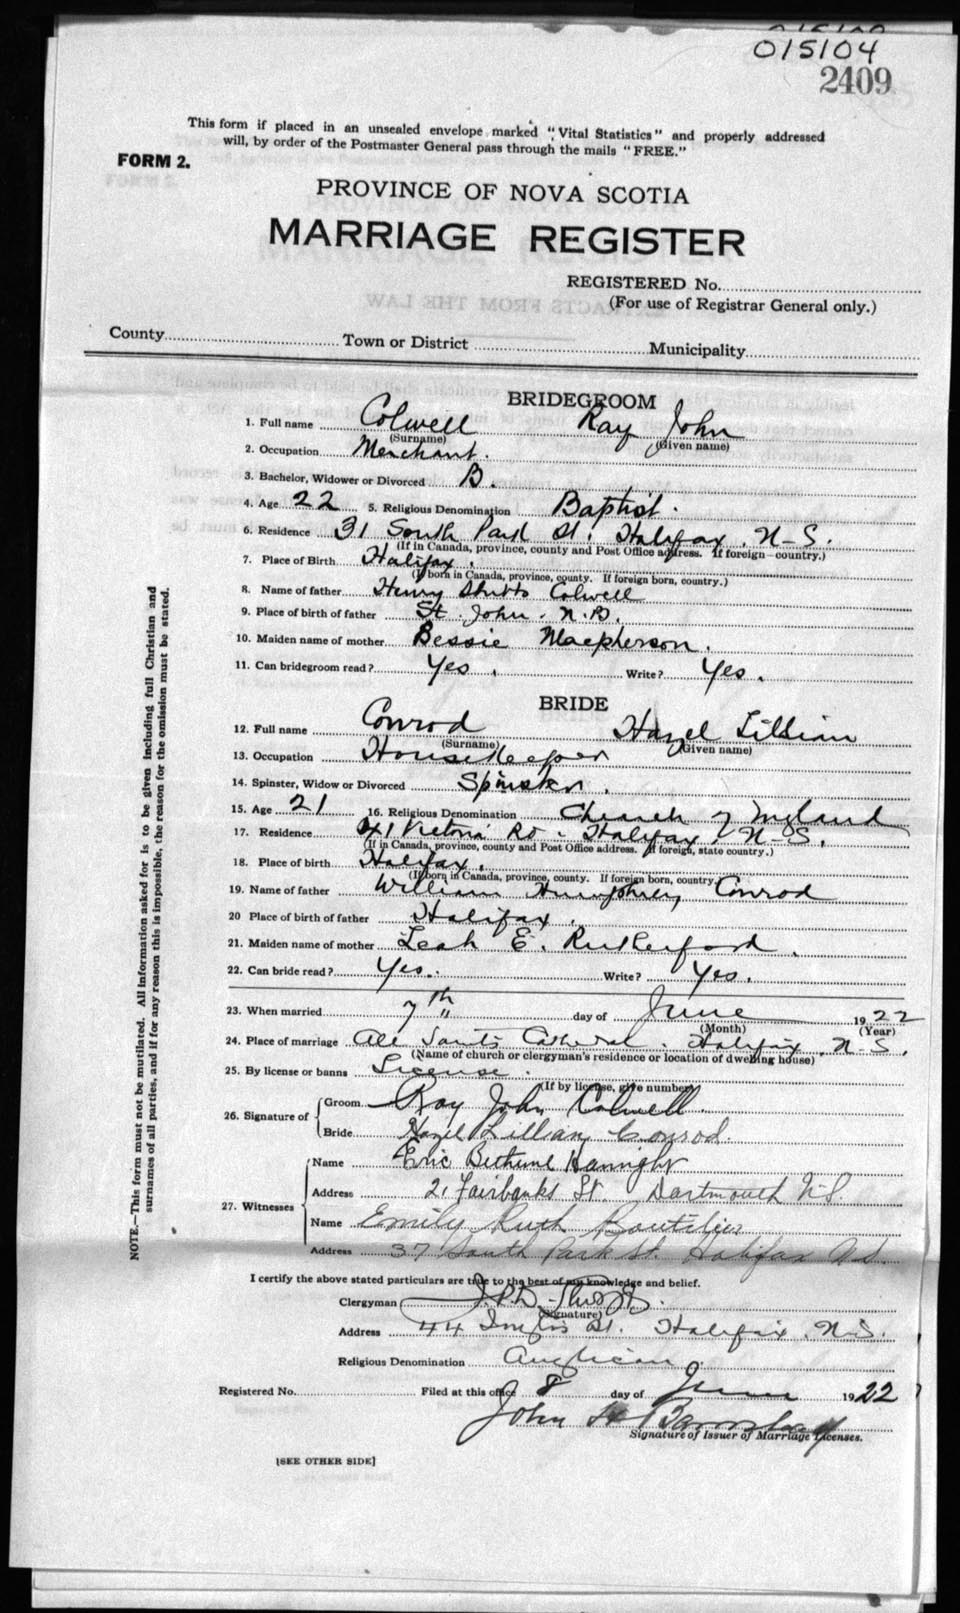 015104
2409
This form if placed in an unsealed envelope marked "Vital Statistics" and properly addressed
will, by order of the Postmaster General pass through the mails "FREE."
FORM 2.
PROVINCE OF NOVA SCOTIA
MARRIAGE REGISTER
REGISTERED No.
(For use of Registrar General only.)
County Town or District Municipality
BRIDEGROOM
1. Full name Colwell Ray John
(Surname) (Given name)
2. Occupation Merchant.
3. Bachelor, Widower or Divorced B.
4. Age 22 5. Religious Denomination Baptist.
6. Residence 31 South Park St. Halifax. N-S.
(If in Canada, province, county and Post Office address. If foreign-country.)
7. Place of Birth Halifax.
(If born in Canada, province, county. If foreign born, country.)
8. Name of father Henry Colwell
9. Place of birth of father St. John. N.B.
10. Maiden name of mother Bessie Macpherson.
11. Can bridegroom read? Yes. Write? Yes.
BRIDE
12. Full name Conrod Hazel Lillian
(Surname) (Given name)
13. Occupation Housekeeper
14. Spinster, Widow or Divorced Spinster.
15. Age 21 16. Religious Denomination Church of England
17. Residence 41 Victoria Rd. Halifax N-S.
(If in Canada, province, county and Post Office address. If foreign, state country.)
18. Place of birth Halifax.
(If born in Canada, province, county. If foreign born, country.)
19. Name of father William Humphrey Conrod
20 Place of birth of father Halifax.
21. Maiden name of mother Leah E. Rutherford.
22. Can bride read? Yes. Write? Yes.
23. When married 7th day of June 1922
(Month) (Year)
24. Place of marriage All Saints Cathedral. Halifax. N-S.
(Name of church or clergyman's residence or location of dwelling house)
25. By license or banns License.
(If by license, give number)
26. Signature of Groom Ray John Colwell.
Bride Hazel Lillian Conrod.
27. Witnesses Name Eric Bethune Hannight
Address 21 Fairbanks St. Dartmouth N.S.
Name Emily Ruth Boutilier
Address 37 South Park St. Halifax N.S.
I certify the above stated particulars are true to the best of my knowledge and belief.
Clergyman
(Signature)
Address 44 Inglis St. Halifax. N.S.
Religious Denomination Anglican.
Registered No. Filed at this office 8 day of June 1922
John H Barnstead
Signature of Issuer of Marriage Licenses.
[SEE OTHER SIDE]
NOTE.—This form must not be mutilated. All information asked for is to be given including full Christian and
surnames of all parties, and if for any reason this is impossible, the reason for the omission must be stated.